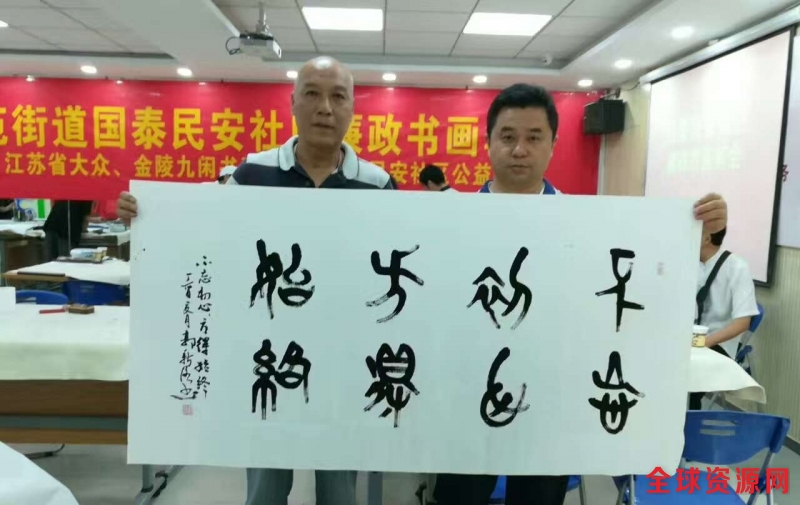 街道国泰民安社 廉政书画
江苏省大众、金陵九闲书 安社区公益
不忘
初心
方得
始终
不忘初心方得始终
丁酉夏月
全球资源网